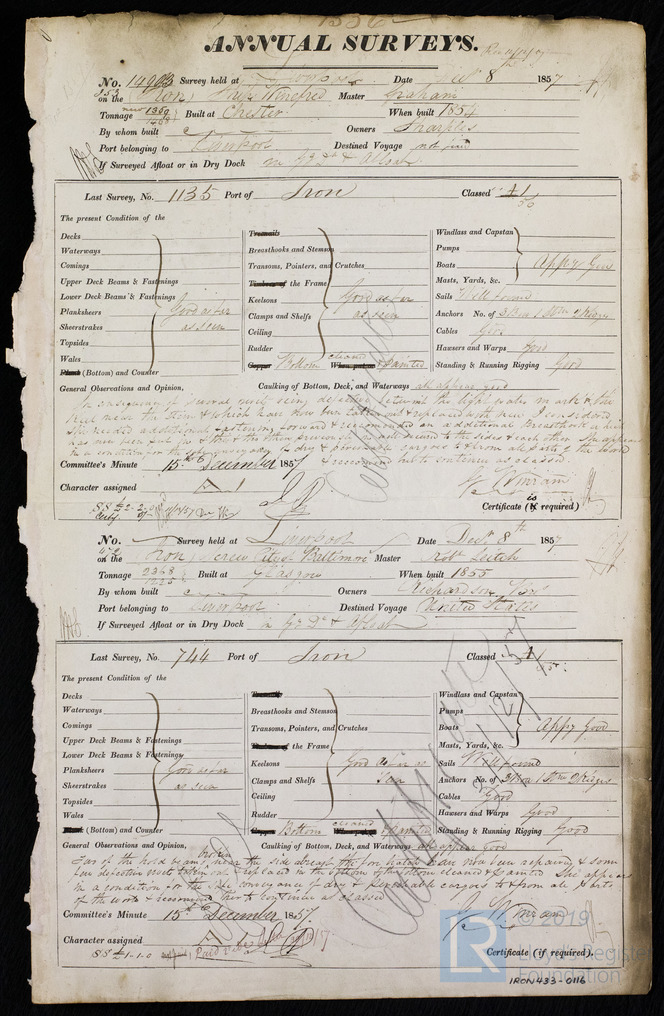 1336
ANNUAL SURVEYS.
No. Survey held at Liverpool Date 8 1857
on the Iron Ship Winefred Master Graham
Tonnage new 1359 Built at Chester When built 1854
By whom built Owners Sharples
Port belonging to Liverpool Destined Voyage not fixed
If Surveyed Afloat or in Dry Dock in Gr Dk & Afloat
Last Survey, No. 1135 Port of Iron Classed A1
The present Condition of the
Decks
Waterways
Comings
Upper Deck Beams & Fastenings
Lower Deck Beams & Fastenings
Planksheers Good as far
Sheerstrakes as seen
Topsides
Wales
(Bottom) and Counter
Treenails
Breasthooks and Stemson
Transoms, Pointers, and Crutches
Timbers of the Frame
Keelsons Good as far
Clamps and Shelfs as seen
Ceiling
Rudder
Copper Bottom cleaned & painted
Windlass and Capstan
Pumps
Boats Appr Good
Masts, Yards, &c.
Sails Well found
Anchors No. of 3 Br 1 Strm 2 Kedges
Cables Good
Hawsers and Warps Good
Standing & Running Rigging Good
General Observations and Opinion, Caulking of Bottom, Deck, and Waterways all appear good
In consequence of several rivets being defective between the light water mark & the
keel near the stern & which have now been taken out & replaced with new I considered
She needed additional fastening forward & recommended an additional Breasthook which
has now been put in & the others previously in well secured to the sides & each other She appears
in a condition for the safe conveyance of dry & perishable cargoes to & from all parts of the world
& recommend her to continue as classed
Committee's Minute 15th December 1857
Character assigned A1
Certificate (is required)
No. Survey held at Liverpool Date Decr 8th 1857
on the Iron Screw City of Baltimore Master Robt Leitch
Tonnage 2368 Built at Glasgow When built 1855
By whom built Owners Richardson Bros
Port belonging to Liverpool Destined Voyage United States
If Surveyed Afloat or in Dry Dock in Gr Dk & Afloat
Last Survey, No. 744 Port of Iron Classed A1
The present Condition of the
Decks
Waterways
Comings
Upper Deck Beams & Fastenings
Lower Deck Beams & Fastenings
Planksheers Good as far
Sheerstrakes as seen
Topsides
Wales
(Bottom) and Counter
Breasthooks and Stemson
Transoms, Pointers, and Crutches
of the Frame
Keelsons Good as far as
Clamps and Shelfs seen
Ceiling
Rudder
Bottom cleaned & painted
Windlass and Capstan
Pumps
Boats Appr Good
Masts, Yards, &c.
Sails Well found
Anchors No. of 3 Br 1 Strm 2 Kedges
Cables Good
Hawsers and Warps Good
Standing & Running Rigging Good
General Observations and Opinion, Caulking of Bottom, Deck, and Waterways all appear good
of the hold beams broken near the side abreast the fore hatch have now been repaired & some
few defective rivets taken out & replaced in the bottom & the bottom cleaned & painted She appears
in a condition for the safe conveyance of dry & perishable cargoes to & from all parts
of the world & recommend her to continue as classed
Committee's Minute 15th December 1857
Character assigned A1
Certificate (if required).
LR © 2019
Lloyd's Register
Foundation
IRON433-0116